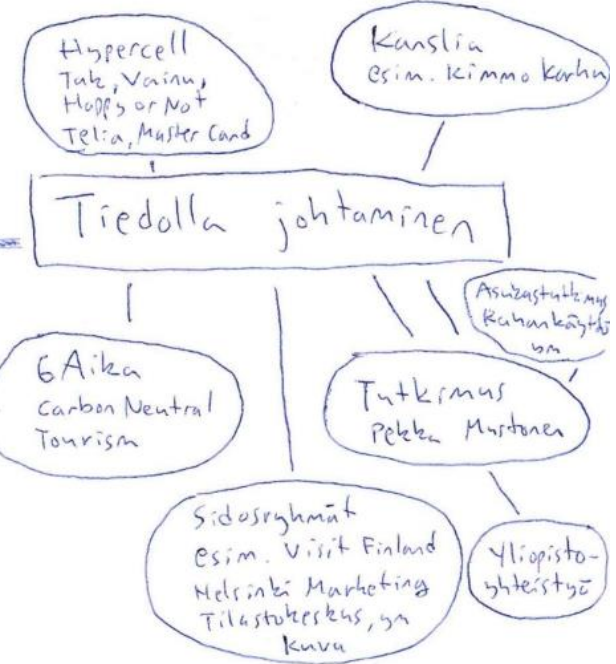 Hypercell
Tak, Vainu,
Happy or Not
Telia, Master Card
Kanslia
esim. Kimmo Karhu
Tiedolla johtaminen
Asukastutkimus
Rahankäyttö
ym
6 Aika
Carbon Neutral
Tourism
Tutkimus
Pekka Mustonen
Sidosryhmät
esim. Visit Finland
Helsinki Marketing
Tilastokeskus, ym
Kuva
Yliopisto-
yhteistyö